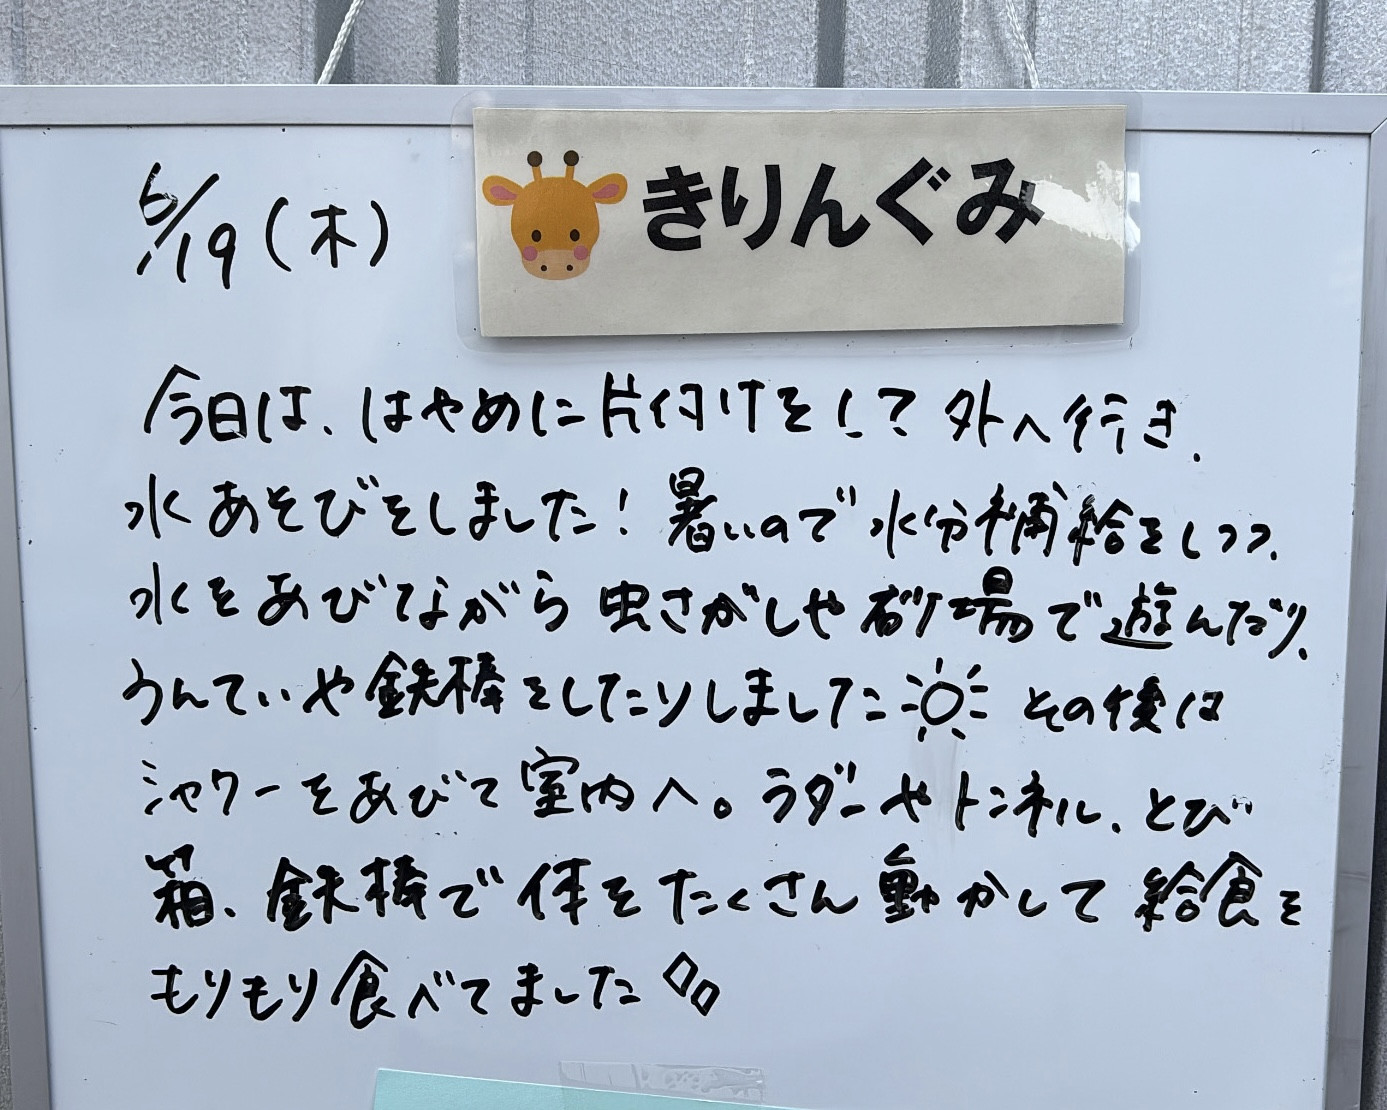 6/19(木)
きりんぐみ
今日は、はやめに片付けをして外へ行き、
水あそびをしました!暑いので水分補給をしつつ、
水をあびながら虫さがしや砂場で遊んだり、
うんていや鉄棒をしたりしました その後は
シャワーをあびて室内へ。ラダーやトンネル、とび
箱、鉄棒で体をたくさん動かして給食を
もりもり食べてました